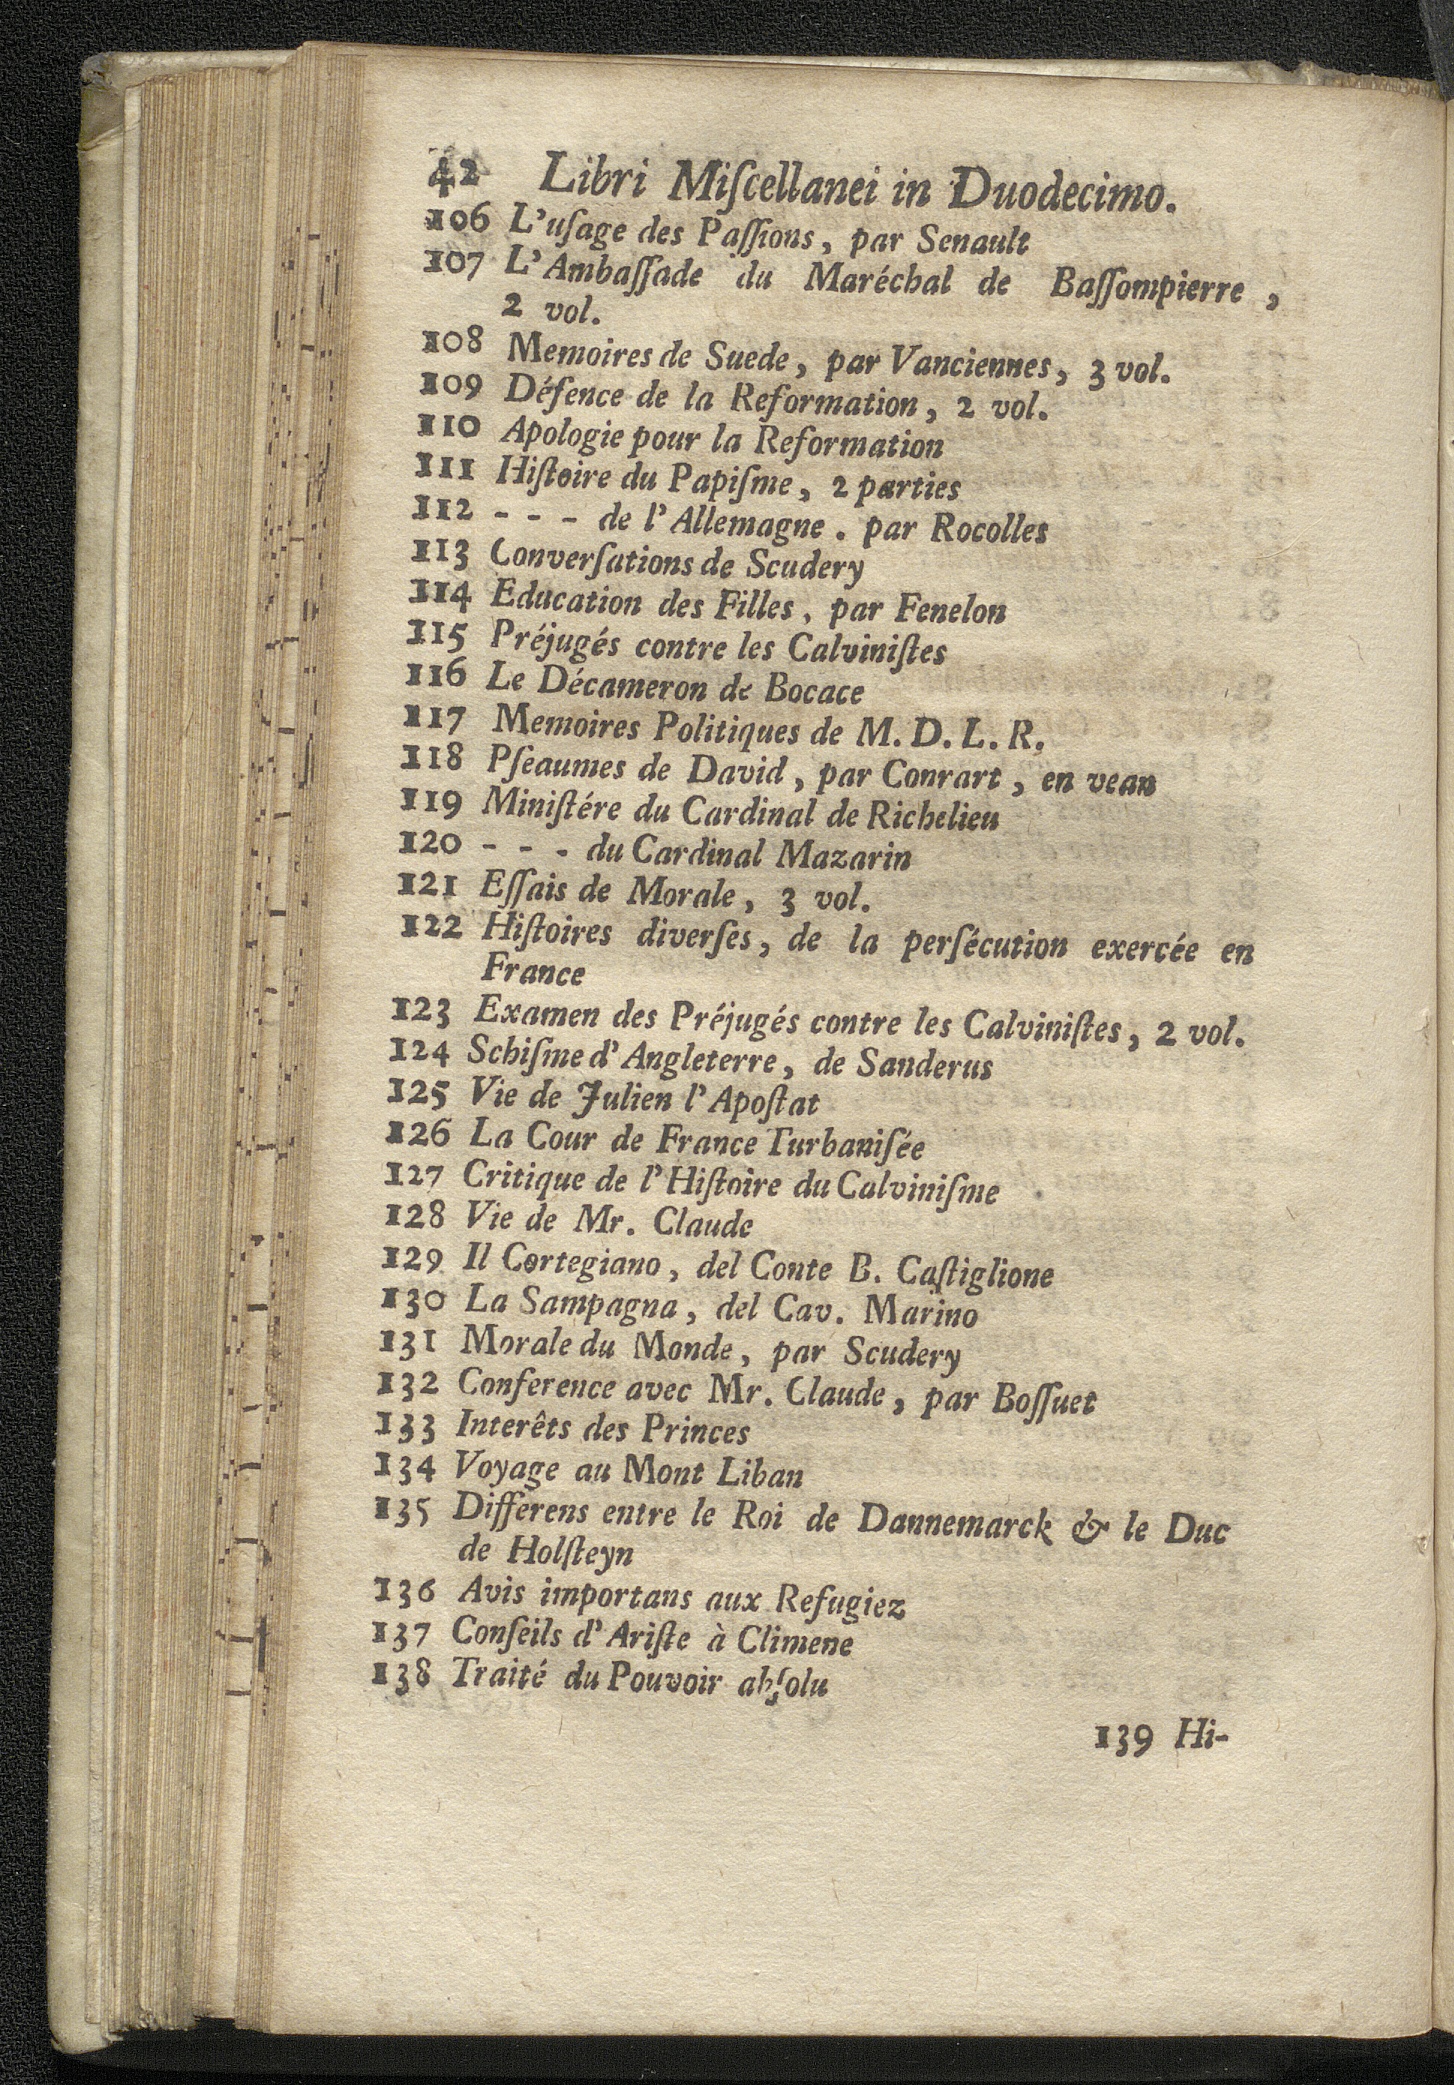 42 Libri Miſcellanei in Duodecimo.
106 L'uſage des Paſſions, par Senault
107 L'Ambaſſade du Maréchal de Baſſompierre,
2 vol.
108 Memoires de Suede, par Vanciennes, 3 vol.
109 Défence de la Reformation, 2 vol.
110 Apologie pour la Reformation
111 Hiſtoire du Papiſme, 2 parties
112 - - - de l'Allemagne. par Rocolles
113 Converſations de Scudery
114 Education des Filles, par Fenelon
115 Préjugés contre les Calviniſtes
116 Le Décameron de Bocace
117 Memoires Politiques de M. D. L. R.
118 Pſeaumes de David, par Conrart, en vean
119 Miniſtére du Cardinal de Richelieu
120 - - - du Cardinal Mazarin
121 Eſſais de Morale, 3 vol.
122 Hiſtoires diverſes, de la perſécution exercée en
France
123 Examen des Préjugés contre les Calviniſtes, 2 vol.
124 Schiſme d'Angleterre, de Sanderus
125 Vie de Julien l'Apoſtat
126 La Cour de France Turbaniſée
127 Critique de l'Hiſtoire du Calviniſme
128 Vie de Mr. Claude
129 Il Cortegiano, del Conte B. Caſtiglione
130 La Sampagna, del Cav. Marino
131 Morale du Monde, par Scudery
132 Conference avec Mr. Claude, par Boſſuet
133 Interêts des Princes
134 Voyage au Mont Liban
135 Differens entre le Roi de Dannemarck & le Duc
de Holſteyn
136 Avis importans aux Refugiez
137 Conſeils d'Ariſte à Climene
138 Traité du Pouvoir abſolu
139 Hi-